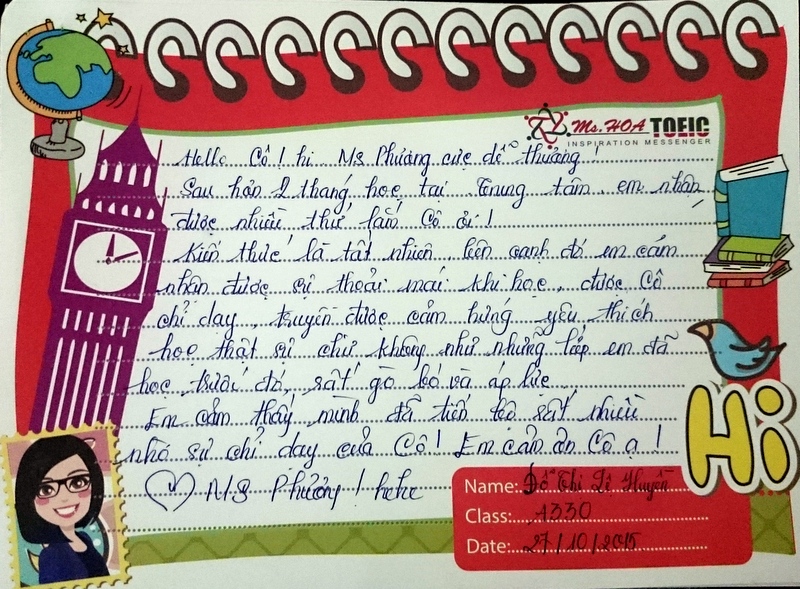 Ms. HOA TOEIC
INSPIRATION MESSENGER
Hello Cô! hi Ms Phương cực dễ thương!
Sau hơn 2 tháng học tại trung tâm em nhận
được nhiều thứ lắm Cô ơi!
Kiến thức là tất nhiên, bên cạnh đó em cảm
nhận được sự thoải mái khi học, được Cô
chỉ dạy, truyền được cảm hứng yêu thích
học thật sự chứ không như những lớp em đã
học trước đó, rất gò bó và áp lực.
Em cảm thấy mình đã tiến bộ rất nhiều
nhờ sự chỉ dạy của Cô! Em cảm ơn Cô ạ!
Ms Phương! hehe
Hi
Name: Đỗ Thị Lệ Huyền
Class: A330
Date: 27/10/2015